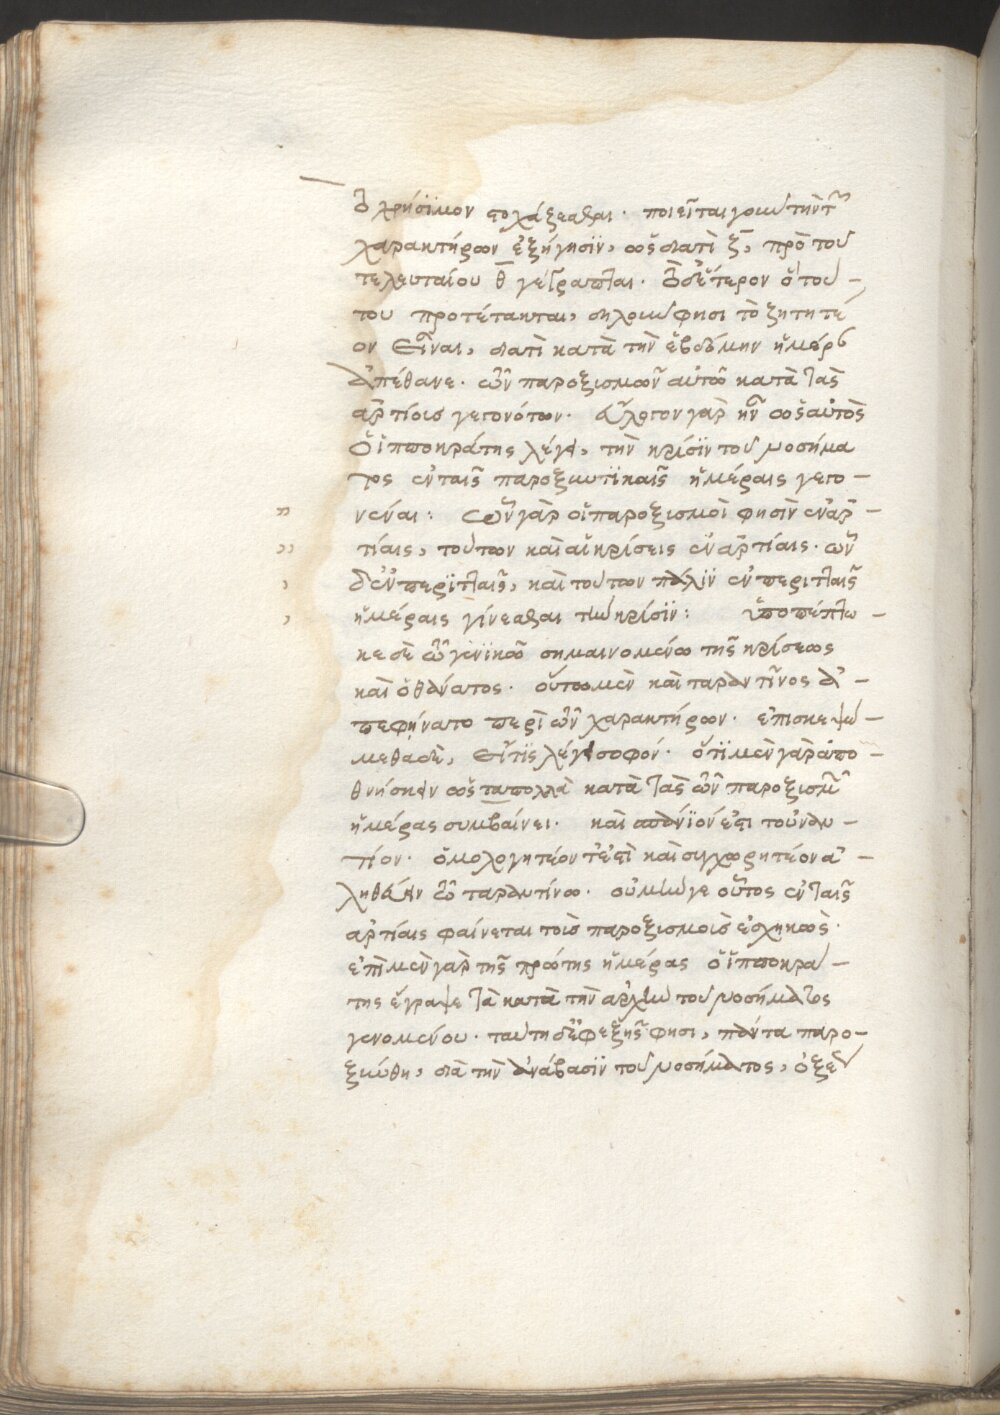 β χρήσϊμον στοχάζεσθαι· ποιεῖται γοῦν τὴν τῶν
χαρακτήρων ἐξήγησϊν, ὡς διατὶ ζ̄, πρὸ τοῦ
τελευταίου θ̄ γέγραπται· δεύτερον ὃ τού-
του προτέτακται, δηλοῦν φησι τὸ ζητητέ
ον εἶναι, διατὶ κατὰ τὴν ἑβδόμην ἡμέραν
ἀπέθανε· τῶν παροξισμῶν αὐτῶ κατὰ τὰς
ἀρτίοις γεγονότων· ἄλογον γὰρ ἦν ὡς αὐτὸς
ὁ ἱπποκράτης λέγει, τὴν κρίσϊν τοῦ νοσήμα
τος ἐν ταῖς παροξυντϊκαῖς ἡμέραις γεγο-
νέναι: ὧν γὰρ οἱ παροξισμοὶ φησὶν ἐν ἀρ-
τίαις, τούτων καὶ αἱ κρίσεις ἐν ἀρτίαις· ὧν
δ' ἐν περϊτταῖς, καὶ τούτων πάλϊν ἐν περιτταῖς
ἡμέραις γίνεσθαι τὴν κρίσϊν: ὑποπέπτω-
κε δὲ τῶ γενϊκῶ σημαινομένω τῆς κρίσεως
καὶ ὁ θάνατος· οὕτω μὲν καὶ ταραντῖνος ἀ-
πεφήνατο περὶ τῶν χαρακτήρων· ἐπισκεψώ-
μεθα δὲ, εἴ τις λέγει σοφόν· ὅτϊ μὲν γὰρ ἀπο-
θνήσκειν ὡς ταπολλὰ κατὰ τὰς τῶν παροξισμῶν
ἡμέρας συμβαίνει· καὶ σπάνϊόν ἐστι τοὐναν-
τίον· ὁμολογητέον τέ ἐστὶ καὶ συγχωρητέον ἀ-
ληθεύειν τῶ ταραντίνω· οὐ μὴν γε οὗτος ἐν ταῖς
ἀρτίαις φαίνεται τοῖς παροξισμοῖς ἐσχηκὼς·
ἐπὶ μὲν γὰρ τῆς πρώτης ἡμέρας ὁ ἱπποκρά-
της ἔγραψε τὰ κατὰ τὴν ἀρχὴν τοῦ νοσήματος
γενομένου· ταύτη δ' ἐφεξῆς φησι, πάντα παρο-
ξύνθη, διὰ τὴν ἀνάβασϊν τοῦ νοσήματος, ὀξεῖ